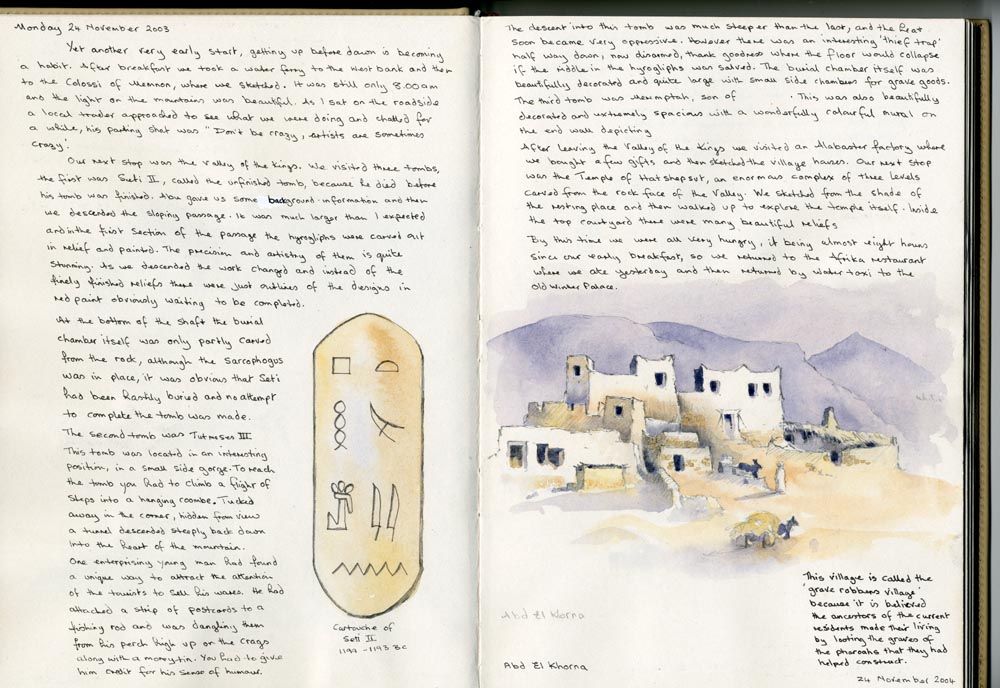 Monday 24 November 2003
Yet another very early start, getting up before dawn is becoming
a habit. After breakfast we took a water ferry to the west bank and then
to the Colossi of Memnon, where we sketched. It was still only 8.00am
and the light on the mountains was beautiful. As I sat on the roadside
a local trader approached to see what we were doing and chatted for
a while, his parting shot was "Don't be crazy, artists are sometimes
crazy'.
Our next stop was the Valley of the Kings. We visited three tombs,
the first was Seti II, called the unfinished tomb, because he died before
his tomb was finished. Abu gave us some background information and then
we descended the sloping passage. It was much larger than I expected
and in the first section of the passage the hyrogliphs were carved out
in relief and painted. The precision and artistry of them is quite
stunning. As we descended the work changed and instead of the
finely finished reliefs there were just outlines of the designs in
red paint obviously waiting to be completed.
At the bottom of the shaft the burial
chamber itself was only partly carved
from the rock, although the sarcophogus
was in place, it was obvious that Seti
had been hastily buried and no attempt
to complete the tomb was made.
The second tomb was Tutmoses III
This tomb was located in an interesting
position, in a small side gorge. To reach
the tomb you had to climb a flight of
steps into a hanging coombe. Tucked
away in the corner, hidden from view
a tunnel descended steeply back down
into the heart of the mountain.
One enterprising young man had found
a unique way to attract the attention
of the tourists to sell his wares. He had
attached a strip of postcards to a
fishing rod and was dangling them
from his perch high up on the crags
along with a money tin. You had to give
him credit for his sense of humour.
Cartouche of
Seti II
1199 - 1193 BC
The descent into this tomb was much steeper than the last, and the heat
soon became very oppressive. However there was an interesting 'thief trap'
half way down, now disarmed, thank goodness where the floor would collapse
if the riddle in the hyrogliphs was solved. The burial chamber itself was
beautifully decorated and quite large with small side chambers for grave goods.
The third tomb was Merumptah, son of . This was also beautifully
decorated and extremely spacious with a wonderfully colourful mural on
the end wall depicting
After leaving the Valley of the Kings we visited an Alabaster factory where
we bought a few gifts and then sketched the village houses. Our next stop
was the Temple of Hatshepsut, an enormous complex of three levels
carved from the rock face of the Valley. We sketched from the shade of
the resting place and then walked up to explore the temple itself. Inside
the top courtyard there were many beautiful reliefs
By this time we were all very hungry, it being almost eight hours
since our early breakfast, so we returned to the Afrika restaurant
where we ate yesterday and then returned by water taxi to the
Old Winter Palace.
This village is called the
'grave robbers village'
because it is believed
the ancestors of the current
residents made their living
by looting the graves of
the pharoahs that they had
helped construct.
Abd El Khorna
Abd El Khorna
24 November 2004